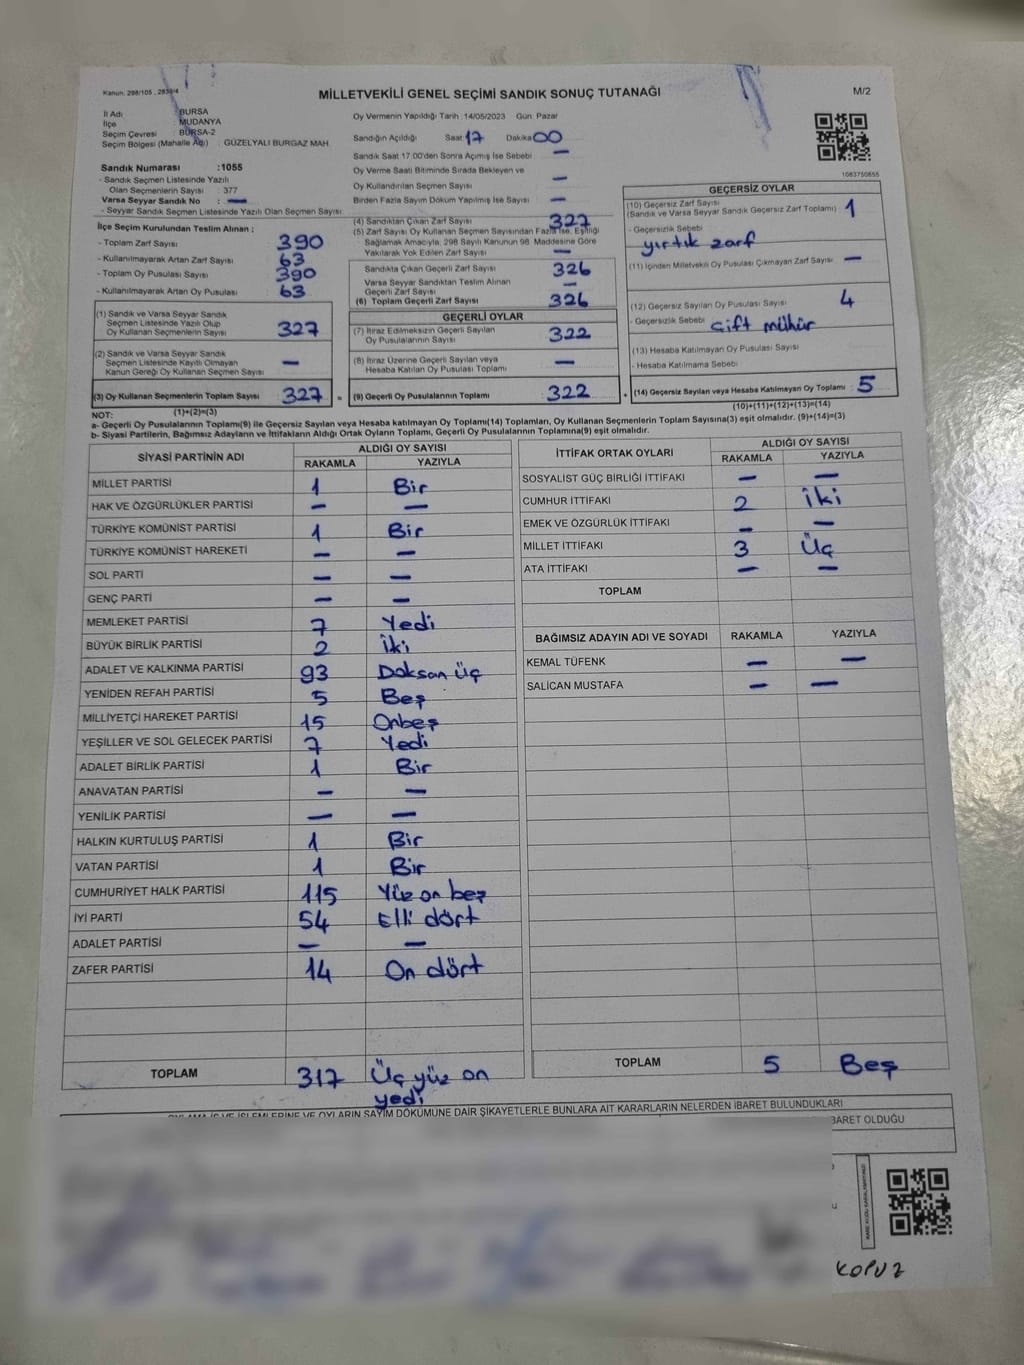 Kanun. 298/105 , 2839/4
MİLLETVEKİLİ GENEL SEÇİMİ SANDIK SONUÇ TUTANAĞI
M/2
İl Adı : BURSA
İlçe : MUDANYA
Seçim Çevresi : BURSA-2
Seçim Bölgesi (Mahalle Adı) : GÜZELYALI BURGAZ MAH.
Sandık Numarası :1055
- Sandık Seçmen Listesinde Yazılı
Olan Seçmenlerin Sayısı : 377
Varsa Seyyar Sandık No : —
- Seyyar Sandık Seçmen Listesinde Yazılı Olan Seçmen Sayısı
İlçe Seçim Kurulundan Teslim Alınan ;
- Toplam Zarf Sayısı 390
- Kullanılmayarak Artan Zarf Sayısı 63
- Toplam Oy Pusulası Sayısı 390
- Kullanılmayarak Artan Oy Pusulası 63
(1) Sandık ve Varsa Seyyar Sandık
Seçmen Listesinde Yazılı Olup
Oy Kullanan Seçmenlerin Sayısı 327
(2) Sandık ve Varsa Seyyar Sandık
Seçmen Listesinde Kayıtlı Olmayan
Kanun Gereği Oy Kullanan Seçmen Sayısı —
(3) Oy Kullanan Seçmenlerin Toplam Sayısı 327
(1)+(2)=(3)
Oy Vermenin Yapıldığı Tarih :14/05/2023 Gün: Pazar
Sandığın Açıldığı Saat 17 Dakika 00
Sandık Saat 17.00'den Sonra Açımış İse Sebebi —
Oy Verme Saati Bitiminde Sırada Bekleyen ve
Oy Kullandırılan Seçmen Sayısı —
Birden Fazla Sayım Döküm Yapılmış İse Sayısı —
(4) Sandıktan Çıkan Zarf Sayısı 327
(5) Zarf Sayısı Oy Kullanan Seçmen Sayısından Fazla İse, Eşitliği
Sağlamak Amacıyla, 298 Sayılı Kanunun 98. Maddesine Göre
Yakılarak Yok Edilen Zarf Sayısı —
Sandıkta Çıkan Geçerli Zarf Sayısı 326
Varsa Seyyar Sandıktan Teslim Alınan
Geçerli Zarf Sayısı —
(6) Toplam Geçerli Zarf Sayısı 326
GEÇERLİ OYLAR
(7) İtiraz Edilmeksizin Geçerli Sayılan
Oy Pusulalarının Sayısı 322
(8) İtiraz Üzerine Geçerli Sayılan veya
Hesaba Katılan Oy Pusulası Toplamı —
= (9) Geçerli Oy Pusulalarının Toplamı 322
1083750855
GEÇERSİZ OYLAR
(10) Geçersiz Zarf Sayısı
(Sandık ve Varsa Seyyar Sandık Geçersiz Zarf Toplamı) 1
- Geçersizlik Sebebi
yırtık zarf
(11) İçinden Milletvekili Oy Pusulası Çıkmayan Zarf Sayısı —
(12) Geçersiz Sayılan Oy Pusulası Sayısı 4
- Geçersizlik Sebebi Çift mühür
(13) Hesaba Katılmayan Oy Pusulası Sayısı
- Hesaba Katılmama Sebebi
+ (14) Geçersiz Sayılan veya Hesaba Katılmayan Oy Toplamı 5
(10)+(11)+(12)+(13)=(14)
NOT:
a- Geçerli Oy Pusulalarının Toplamı(9) ile Geçersiz Sayılan veya Hesaba katılmayan Oy Toplamı(14) Toplamları, Oy Kullanan Seçmenlerin Toplam Sayısına(3) eşit olmalıdır. (9)+(14)=(3)
b- Siyasi Partilerin, Bağımsız Adayların ve İttifakların Aldığı Ortak Oyların Toplamı, Geçerli Oy Pusulalarının Toplamına(9) eşit olmalıdır.
SİYASİ PARTİNİN ADI ALDIĞI OY SAYISI
RAKAMLA YAZIYLA
MİLLET PARTİSİ 1 Bir
HAK VE ÖZGÜRLÜKLER PARTİSİ — —
TÜRKİYE KOMÜNİST PARTİSİ 1 Bir
TÜRKİYE KOMÜNİST HAREKETİ — —
SOL PARTİ — —
GENÇ PARTİ — —
MEMLEKET PARTİSİ 7 Yedi
BÜYÜK BİRLİK PARTİSİ 2 İki
ADALET VE KALKINMA PARTİSİ 93 Doksan üç
YENİDEN REFAH PARTİSİ 5 Beş
MİLLİYETÇİ HAREKET PARTİSİ 15 Onbeş
YEŞİLLER VE SOL GELECEK PARTİSİ 7 Yedi
ADALET BİRLİK PARTİSİ 1 Bir
ANAVATAN PARTİSİ — —
YENİLİK PARTİSİ — —
HALKIN KURTULUŞ PARTİSİ 1 Bir
VATAN PARTİSİ 1 Bir
CUMHURİYET HALK PARTİSİ 115 Yüz on beş
İYİ PARTİ 54 Elli dört
ADALET PARTİSİ — —
ZAFER PARTİSİ 14 On dört
TOPLAM 317 Üç yüz on
yedi
İTTİFAK ORTAK OYLARI ALDIĞI OY SAYISI
RAKAMLA YAZIYLA
SOSYALİST GÜÇ BİRLİĞİ İTTİFAKI — —
CUMHUR İTTİFAKI 2 İki
EMEK VE ÖZGÜRLÜK İTTİFAKI — —
MİLLET İTTİFAKI 3 Üç
ATA İTTİFAKI — —
TOPLAM
BAĞIMSIZ ADAYIN ADI VE SOYADI RAKAMLA YAZIYLA
KEMAL TÜFENK — —
SALİCAN MUSTAFA — —
TOPLAM 5 Beş
OYLAMA İŞ VE İŞLEMLERİNE VE OYLARIN SAYIM DÖKÜMÜNE DAİR ŞİKAYETLERLE BUNLARA AİT KARARLARIN NELERDEN İBARET BULUNDUKLARI
BARET OLDUĞU